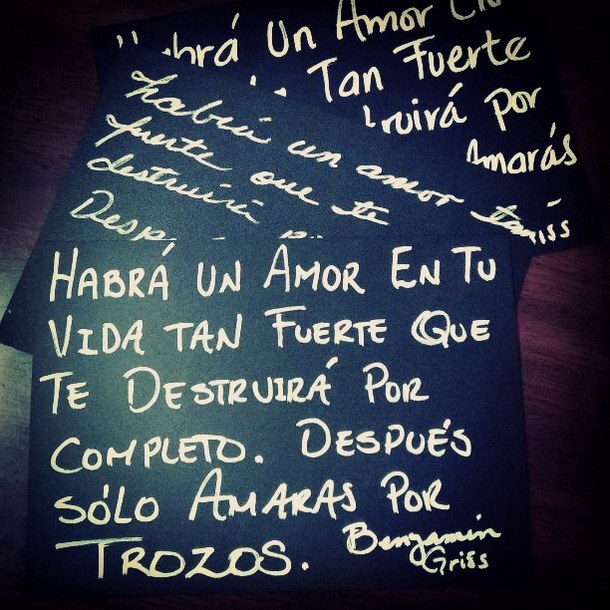 Habrá Un Amor
Tan Fuerte
por
Amarás
habrá un amor tan
fuerte que te
destruirá
HABRÁ UN AMOR EN TU
VIDA TAN FUERTE QUE
TE DESTRUIRÁ POR
COMPLETO. DESPUÉS
SÓLO AMARAS POR
TROZOS. Benjamin
Griss